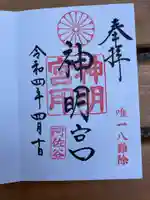 奉拝
唯一八難除
神明宮
神明宮
阿佐谷
令和四年四月十日